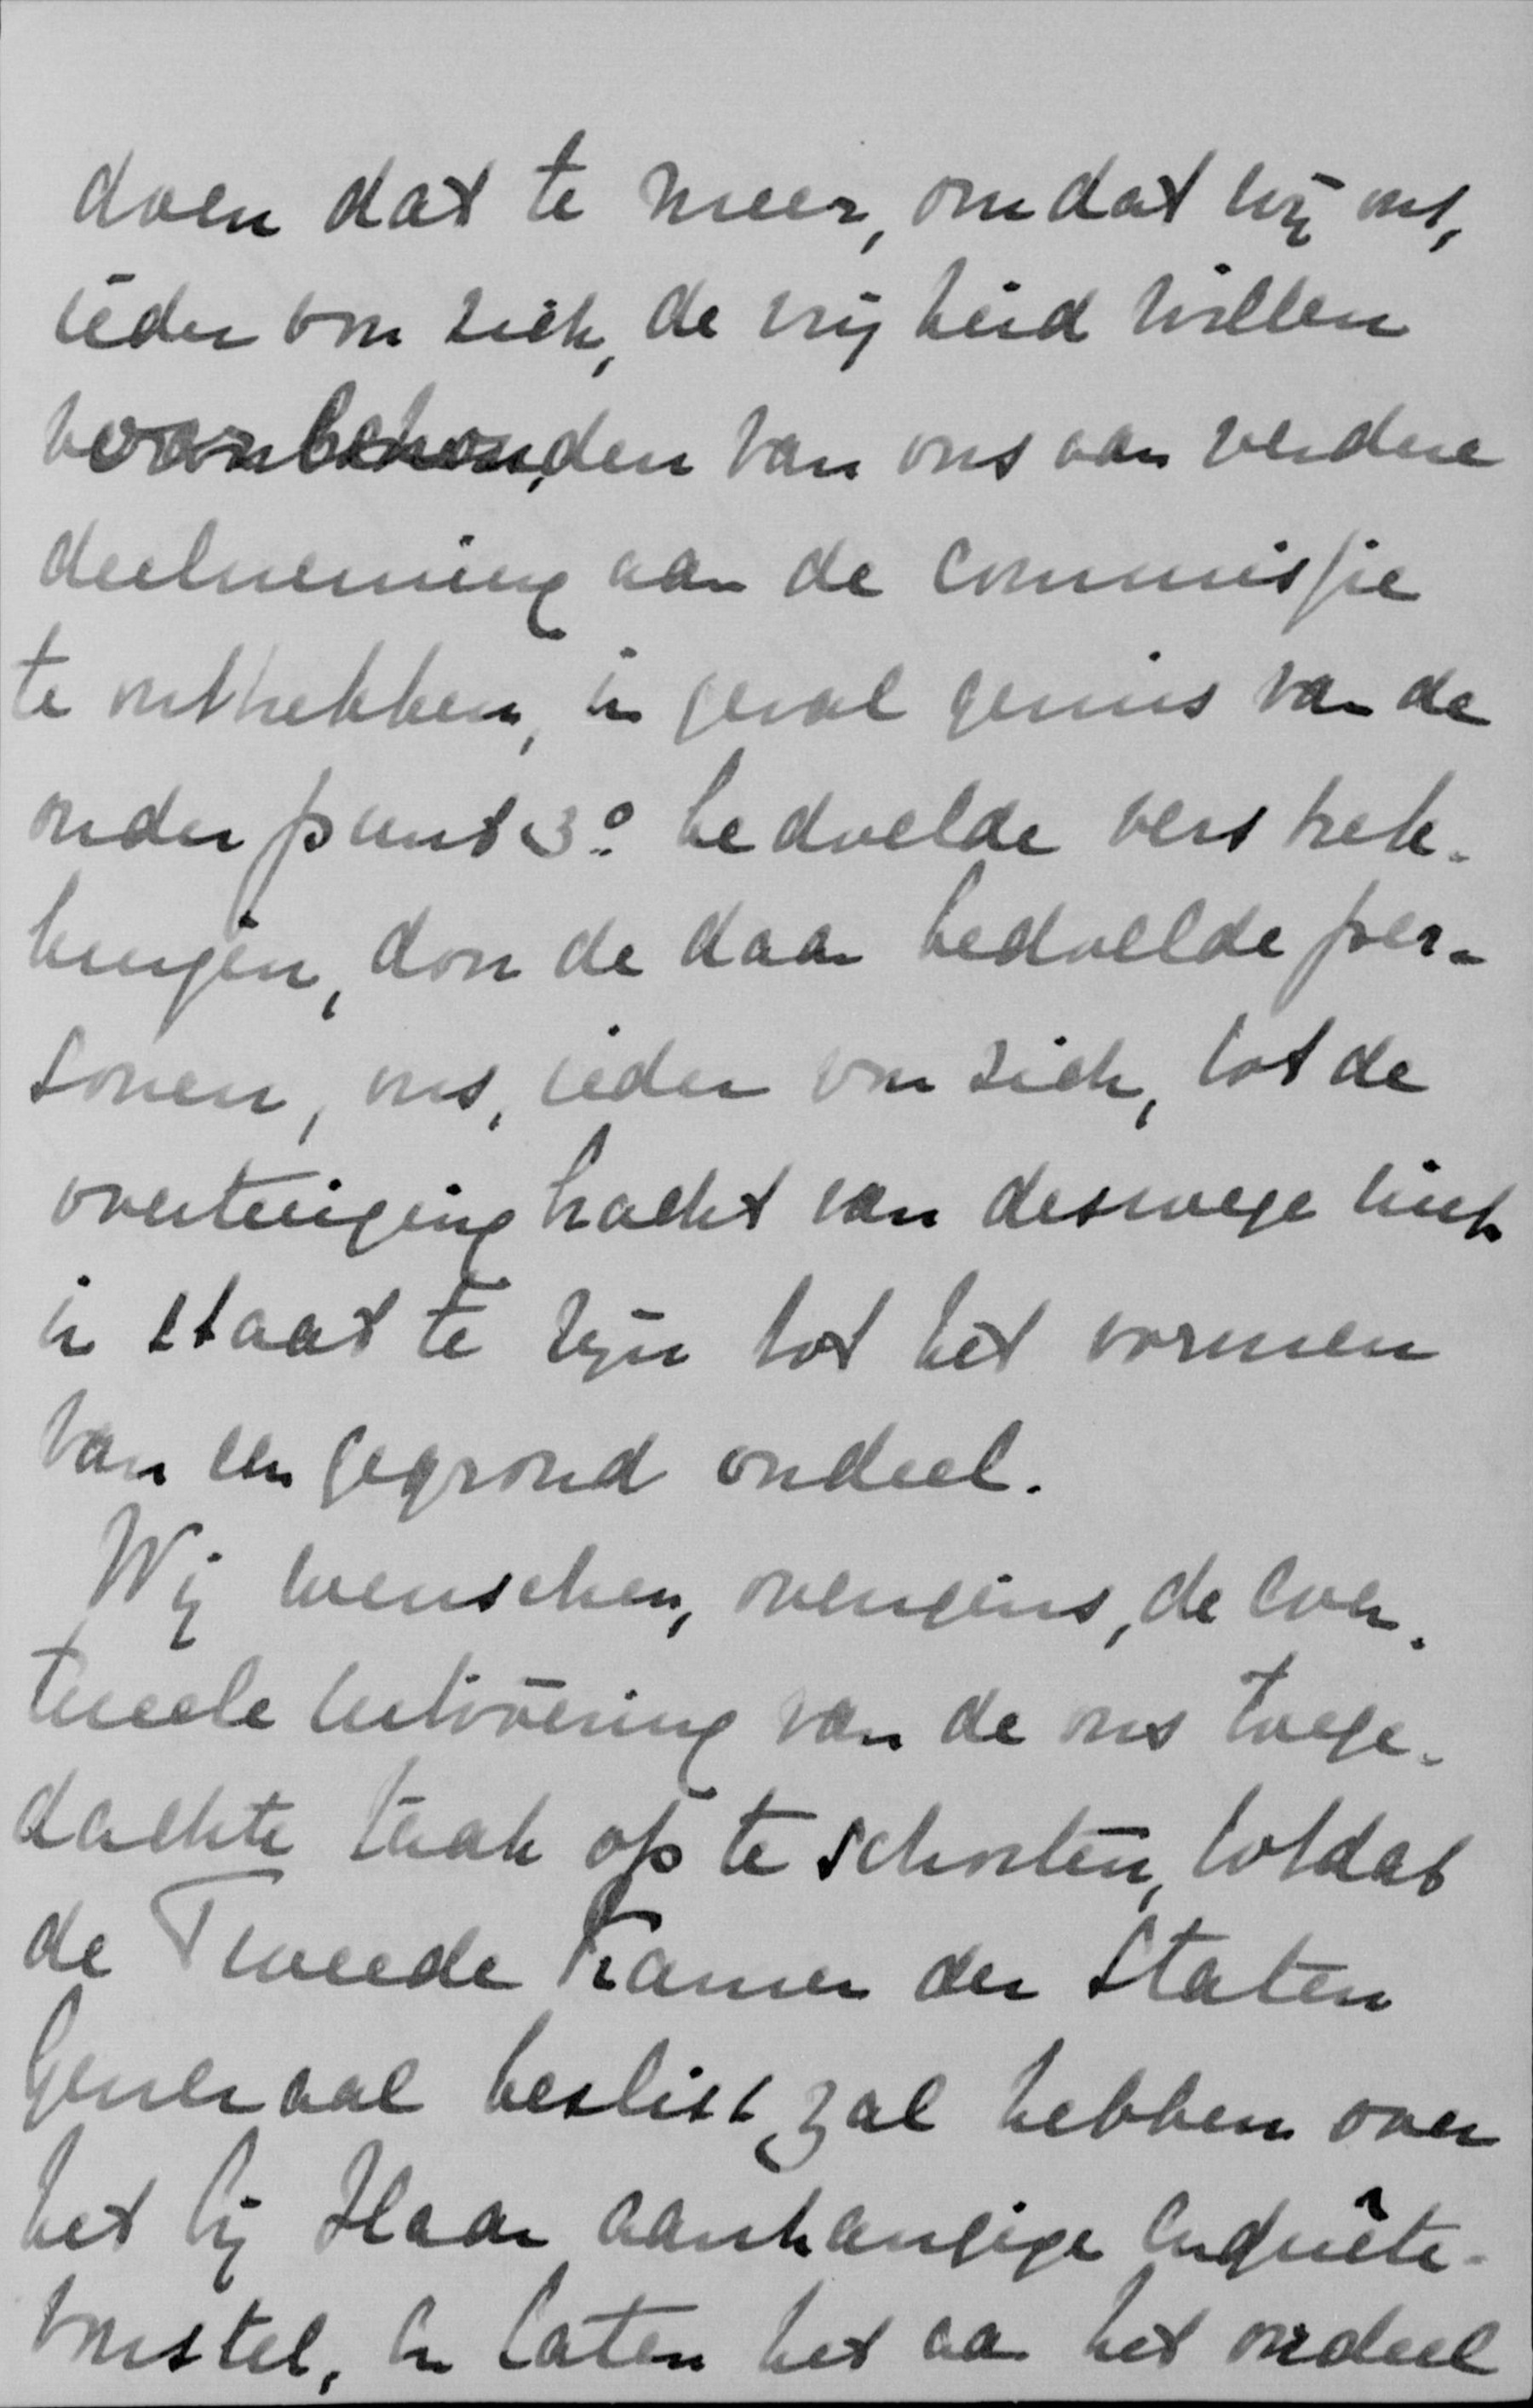 doen dat te meer, omdat wij ons,
ieder voor zich, de vrijheid willen
voorbehouden van ons aan verdere
deelneming aan de commissie
te onttrekken, in geval gemis van de
onder punt 3º bedoelde verstrek-
kingen, door de daar bedoelde per-
sonen, ons, ieder voor zich, tot de
overtuiging bracht van deswege niet
in staat te zijn tot het vormen
van een gegrond oordeel.
Wij wenschen, overigens, de even-
tueele uitvoering van de ons toege-
dachte taak op te schorten, totdat
de Tweede Kamer der Staten
Generaal beslist zal hebben over
het bij Haar aanhangige enquête-
voorstel, en laten het aan het oordeel